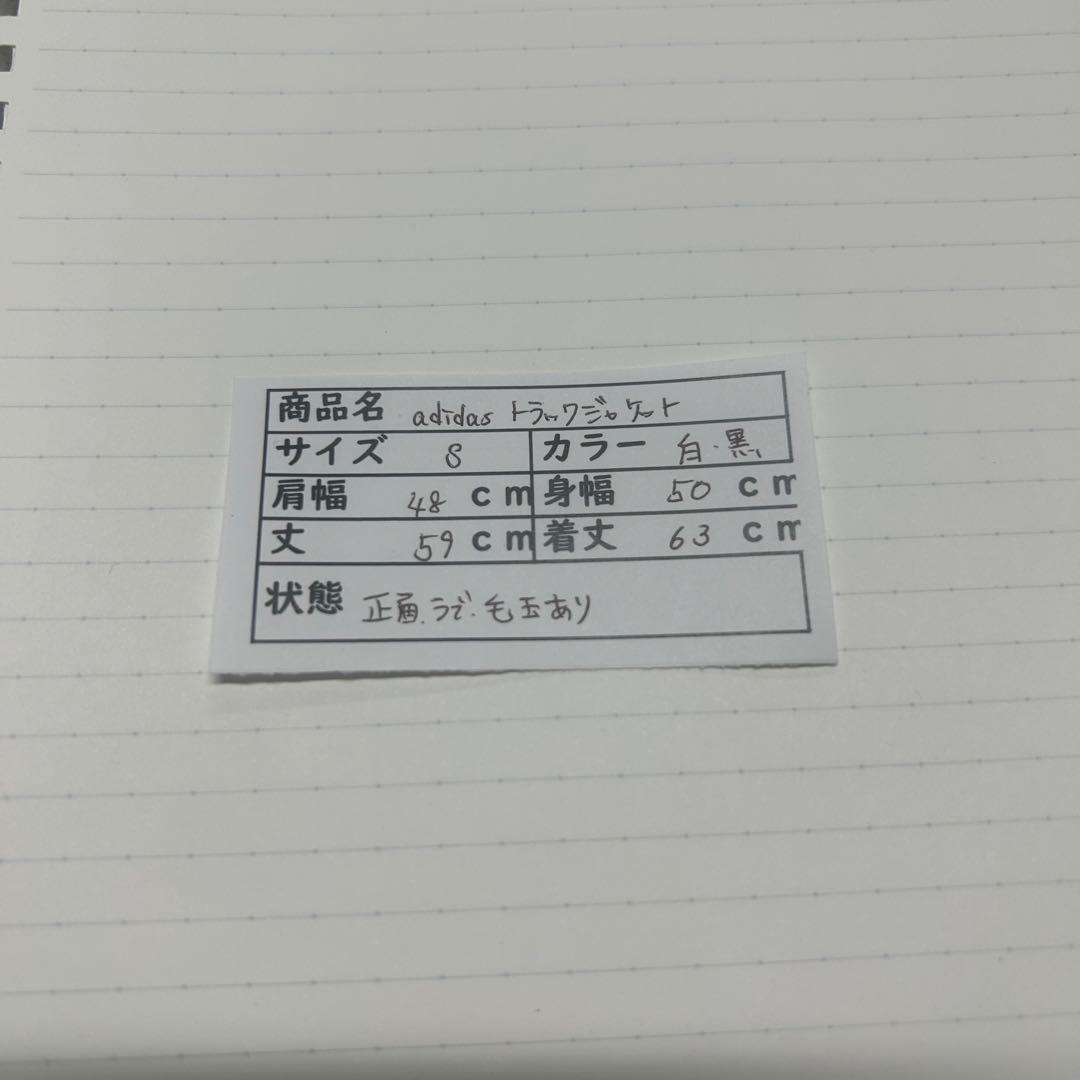 商品名 adidas トラックジャケット
サイズ S カラー 白・黒
肩幅 48 cm 身幅 50 cm
丈 59 cm 着丈 63 cm
状態 正面、うで、毛玉あり